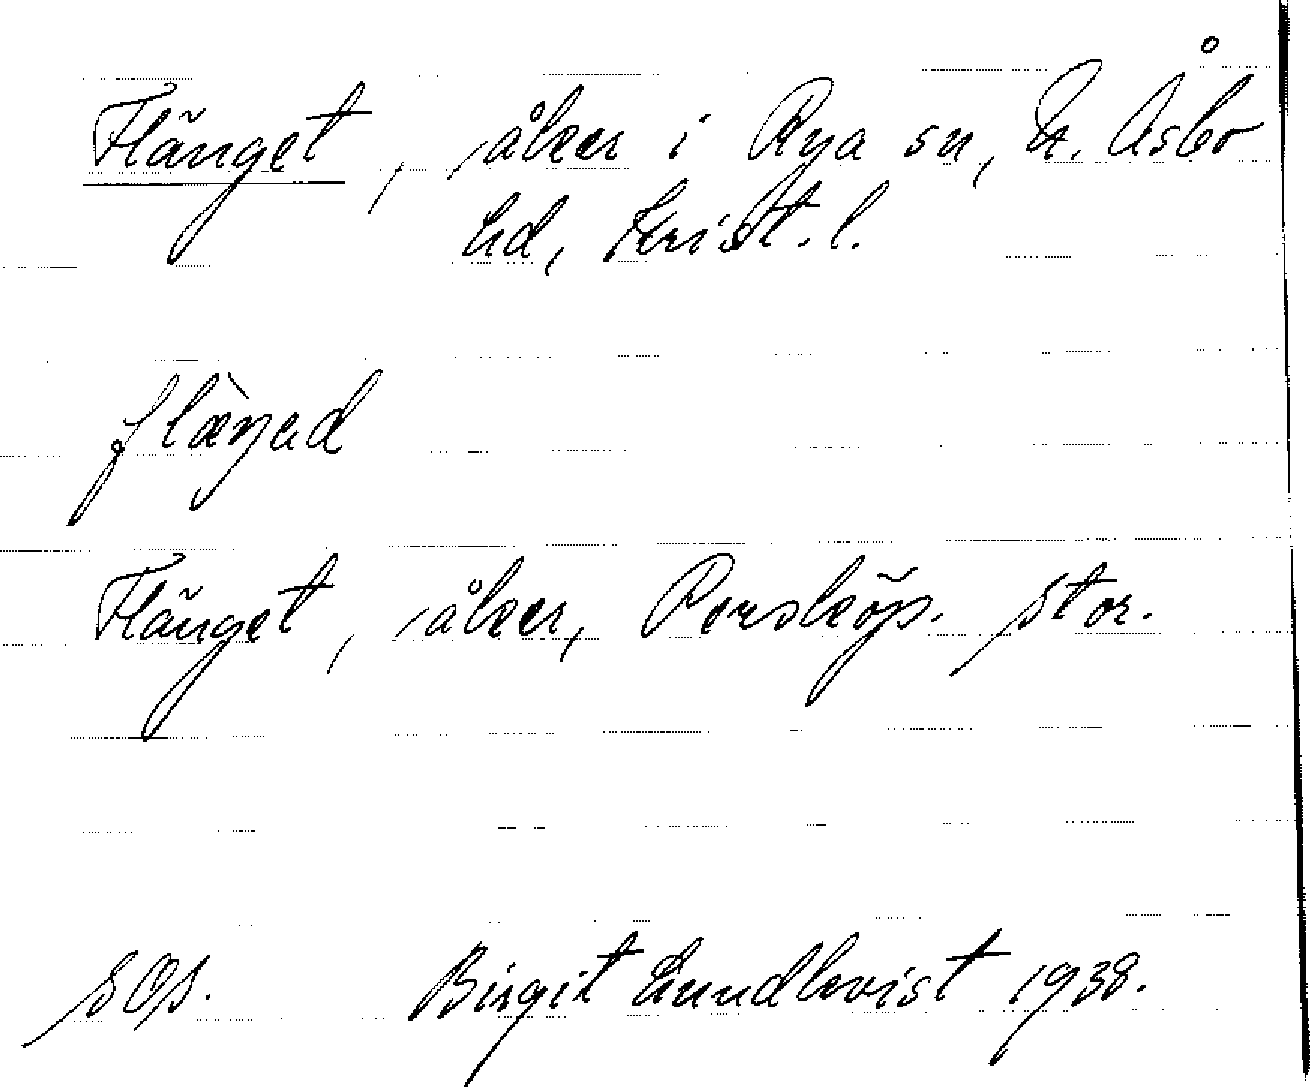 Flänget, åker i Rya sn, N. Åsbo
hd, Krist. l.
flæ̀ŋəd
Flänget, åker, Persköp. Stor.
SOS. Birgit Lundkvist 1938.